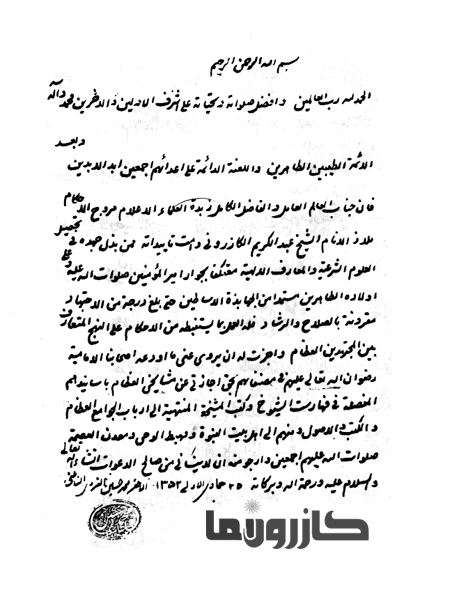 بسم الله الرحمن الرحيم
الحمد لله رب العالمين وافضل صلواته وتحياته على اشرف الاولين والاخرين محمد وآله
وبعد
الائمة الطيبين الطاهرين واللعنة الدائمة على اعدائهم اجمعين ابد الابدين
فان جناب العالم العامل والفاضل الكامل زبدة العلماء الاعلام مروج الاحكام
ملاذ الانام الشيخ عبد الكريم الكازروني دامت تاييداته ممن بذل جهده في تحصيل
العلوم الشرعية والمعارف الالهية معتكفا بجوار امير المؤمنين صلوات الله عليه وعلى
اولاده الطاهرين مستمدا من الجهابذة الاساطين حتى بلغ درجة من الاجتهاد
مقرونة بالصلاح والرشاد فله العمل بما يستنبطه من الاحكام على النهج المتعارف
بين المجتهدين العظام واجزت له ان يروي عني ما اودعه اصحابنا الامامية
رضوان الله تعالى عليهم في مصنفاتهم بحق اجازتي عن مشايخي العظام باسانيدهم
المفصلة في فهارست الشيوخ وكتب المشيخة المنتهية الى ارباب الجوامع العظام
والكتب والاصول ومنهم الى اهل بيت النبوة ومهبط الوحي ومعدن العصمة
صلوات الله عليهم اجمعين وارجو منه ان لا ينساني من صالح الدعوات انشاء الله تعالى
والسلام عليه ورحمة الله وبركاته ٢٥ جمادي الاولى ١٣٥٢ الاحقر محمد حسين الغروي النائيني
كازرون‌نما